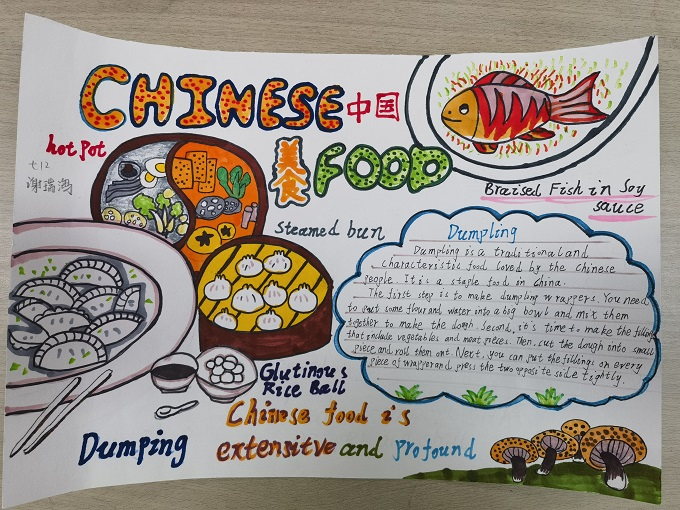 CHINESE 中国
美食 FOOD
hot pot
七.12
谢瑞鸿
Braised Fish in Soy
sauce
steamed bun
Dumpling
Dumpling is a traditional and
characteristic food loved by the Chinese
people. It is a staple food in China.
The first step is to make dumpling wrappers. You need
to put some flour and water into a big bowl and mix them
together to make the dough. Second, it's time to make the filling
that include vegetables and meat pieces. Then. cut the dough into small
piece and roll them out. Next, you can put the fillings on every
piece of wrapper and press the two opposite side tightly.
Glutinous
Rice Ball
Chinese food is
extensitve and profound
Dumping